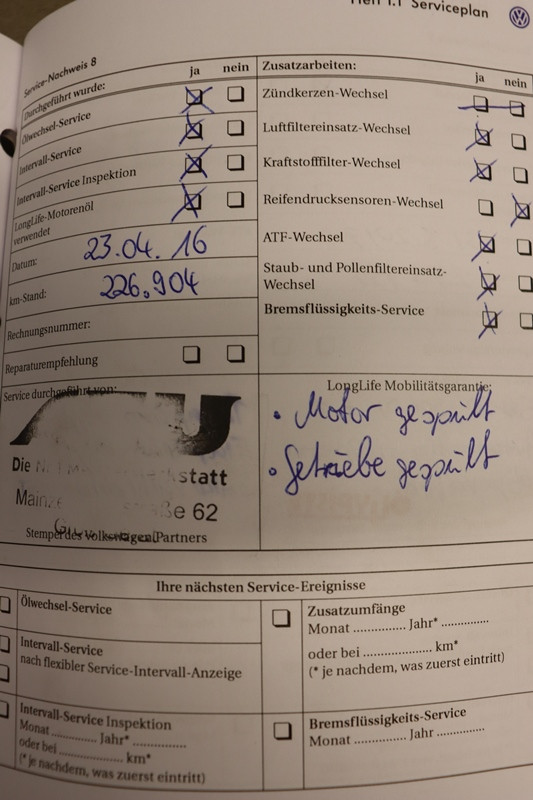 Heft 1.1 Serviceplan
Service-Nachweis 8
Durchgeführt wurde:
ja nein
Ölwechsel-Service
Intervall-Service
Intervall-Service Inspektion
LongLife-Motorenöl
verwendet
Datum: 23.04.16
km-Stand: 226.904
Rechnungsnummer:
Reparaturempfehlung
Zusatzarbeiten:
ja nein
Zündkerzen-Wechsel
Luftfiltereinsatz-Wechsel
Kraftstofffilter-Wechsel
Reifendrucksensoren-Wechsel
ATF-Wechsel
Staub- und Pollenfiltereinsatz-
Wechsel
Bremsflüssigkeits-Service
Service durchgeführt von:
Die
Stempel des Volkswagen Partners
LongLife Mobilitätsgarantie:
• Motor gespült
• Getriebe gespült
Ihre nächsten Service-Ereignisse
Ölwechsel-Service
Intervall-Service
nach flexibler Service-Intervall-Anzeige
Intervall-Service Inspektion
Monat ............. Jahr* ...............
oder bei .................... km*
(* je nachdem, was zuerst eintritt)
Zusatzumfänge
Monat .............. Jahr* .............
oder bei .................... km*
(* je nachdem, was zuerst eintritt)
Bremsflüssigkeits-Service
Monat .............. Jahr ..............